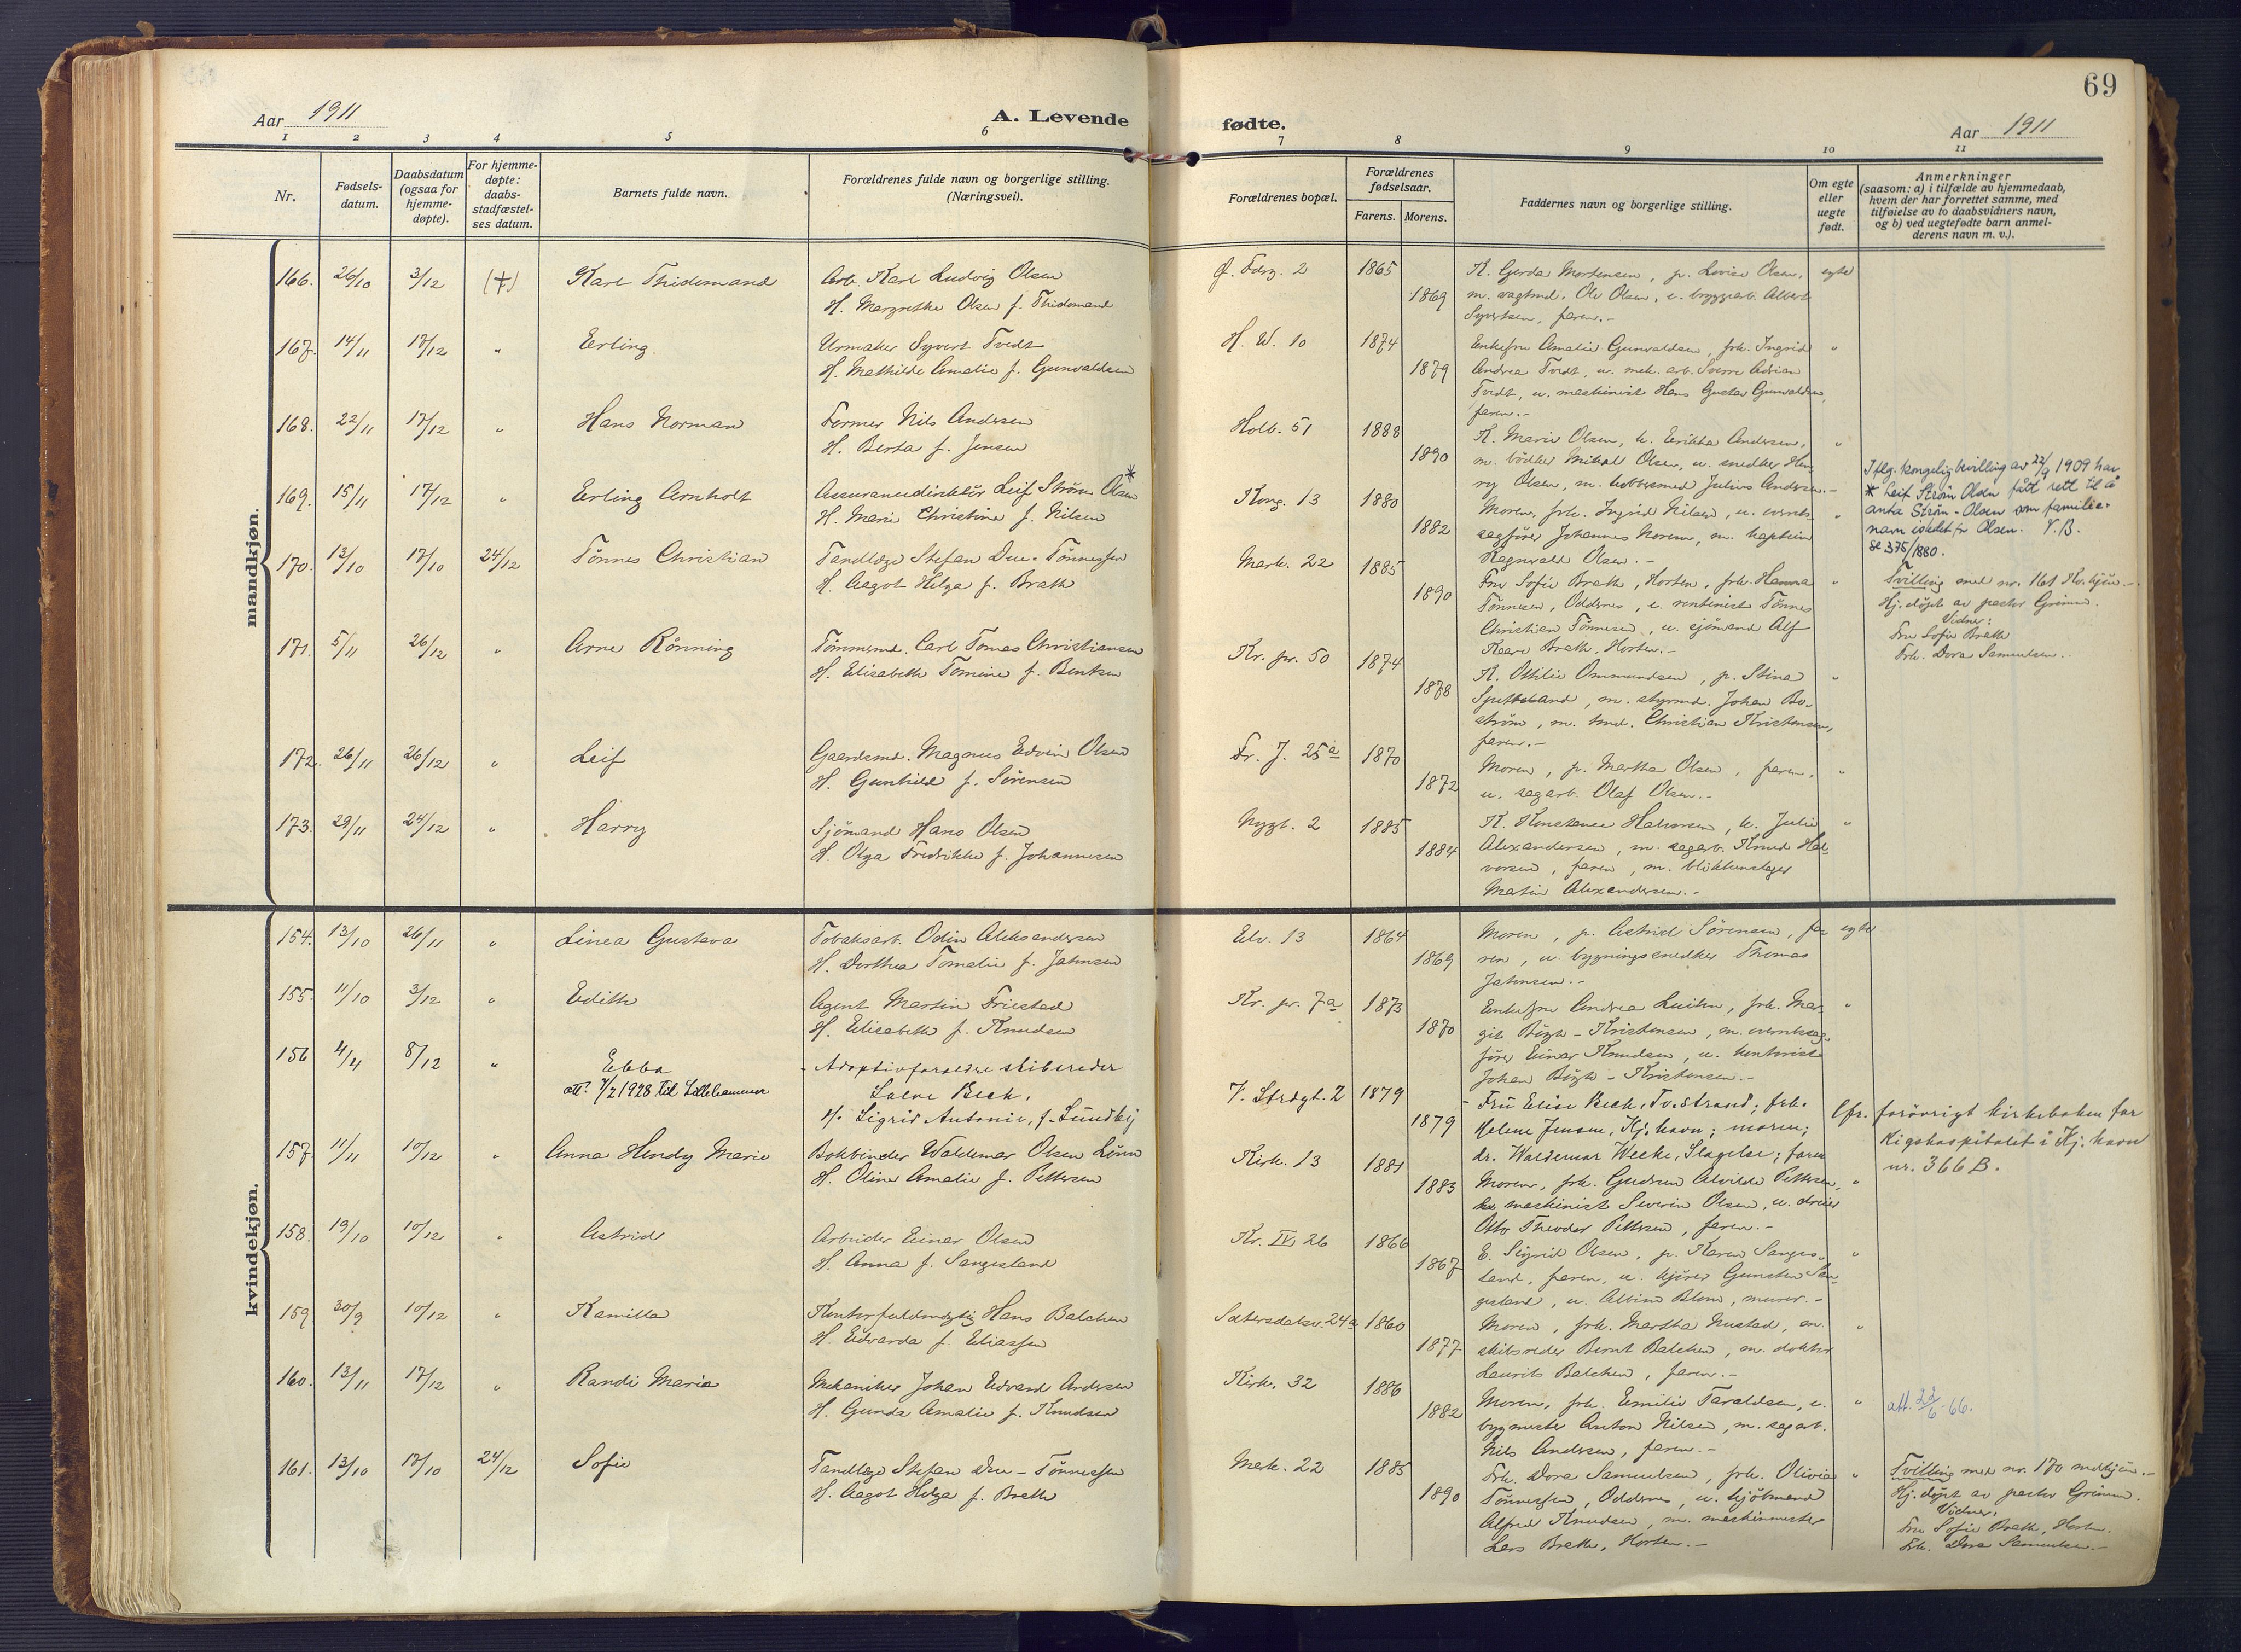 69
Aar 1911
A. Levende
fødte.
Aar 1911
1 2 3 4 5 6 7 8 9 10 11
Nr.
Fødsels-
datum.
Daabsdatum
(ogsaa for
hjemme-
døpte).
For hjemme-
døpte:
daabs-
stadfæstel-
ses datum.
Barnets fulde navn.
Forældrenes fulde navn og borgerlige stilling.
(Næringsvei).
Forældrenes bopæl.
Forældrenes
fødselsaar.
Farens. Morens.
Faddernes navn og borgerlige stilling.
Om egte
eller
uegte
født.
Anmerkninger
(saasom: a) i tilfælde av hjemmedaab,
hvem der har forrettet samme, med
tilføielse av to daabsvidners navn,
og b) ved uegtefødte barn anmel-
derens navn m. v.).
mandkjøn.
166. 26/10 3/12 (+) Karl Thidemand
Arb. Karl Ludvig Olsen
H. Margrethe Olsen f. Thidemand
Ø. Fdrg. 2 1865
1869
K. Gerda Mortensen, p. Lovise Olsen, egte
m. vagtmd. Ole Olsen, u. bryggearb. Albert
Syvertsen, faren.-
167. 14/11 17/12 " Erling
Urmaker Syvert Tvedt
H. Mathilde Amalie f. Gunvaldsen
H. W. 10 1874
1879
Enkefru Amalie Gunvaldsen, frk. Ingrid "
Andrea Tvedt, u. mek. arb. Sverre Adrian
Tvedt, u. maskinist Hans Gustav Gunvaldsen,
faren.-
168. 22/11 17/12 " Hans Norman
Former Nils Andersen
H. Berta f. Jensen
Holb. 51 1888
1890
K. Marie Olsen, k. Erikka Andersen, "
m. bødker Mikal Olsen, u. snedker Hen-
ry Olsen, m. kobbersmed Julius Andersen.-
169. 15/11 17/12 " Erling Arnholt
Assurancedirektør Leif Strøm Olsen *
H. Marie Christine f. Nilsen
Kong. 13 1880
1882
Moren, frk. Ingrid Nilsen, u. overrets- "
sagfører Johannes Noren, m. kaptein
Ragnvald Olsen.-
Iflg. kongelig bevilling av 22/9 1909 har
* Leif Strøm Olsen fått rett til å
anta Strøm-Olsen som familie-
navn istedet for Olsen. V.B.
se 375/1880.
170. 13/10 17/10 24/12 Tønnes Christian
Tandlæge Stefan Due-Tønnessen
H. Aagot Helga f. Brath
Mark. 22 1885
1890
Fru Sofie Brath, Horten, frk. Hanna "
Tønnesen, Oddernes, e. rentenist Tønnes
Christian Tønnesen, u. sjømand Alf
Kaare Brath, Horten.-
Tvilling med nr. 161 Kv.kjøn.-
Hj. døpt av pastor Grimm.
Vidner:
Fru Sofie Brath
Frk. Dora Samuelsen.
171. 5/11 26/12 " Arne Rønning
Tømmermd. Carl Tomas Christiansen
H. Elisabeth Tomine f. Bentsen
Kr. pr. 50 1874
1878
K. Ottilie Ommundsen, p. Stina "
land, m. styrmd. Johan Bo-
strøm, m. tmd. Christian Kristensen,
faren.-
172. 26/11 26/12 " Leif
Gaardsmd. Magnus Edvin Olsen
H. Gunhild f. Sørensen
Fr. J. 25a 1870
1872
Moren, p. Martha Olsen, faren, "
u. sagarb. Olaf Olsen.-
173. 29/11 24/12 " Harry
Sjømand Hans Olsen
H. Olga Fredrikke f. Johannesen
Nygt. 2 1885
1884
K. Konstance Halvorsen, k. Julie "
Alexandersen, m. sagarb. Knud Hal-
vorsen, faren, m. blikkenslager
Martin Alexandersen.-
kvindekjøn.
154. 13/10 26/11 " Linea Gustava
Tobaksarb. Odin Aleksandersen
H. Dorthea Tomalie f. Jahnsen
Elv. 13 1864
1869
Moren, p. Astrid Sørensen, fa- egte
ren, u. bygningssnedker Thomas
Jahnsen.-
155. 11/10 3/12 " Edith
Agent Martin Friestad
H. Elisabeth f. Knudsen
Kr. pr. 7a 1873
1870
Enkefru Andrea Luihn, frk. Mar- "
git Bögh-Kristensen, m. overretssag-
fører Einar Knudsen, u. kontorist
Johan Bögh-Kristensen.-
156 4/4 8/12 " Ebba
att. 7/2 1928 til Lillehammer
- Adoptivforældre skibsreder
Salve Beck.
H. Sigrid Antonie, f. Sundbij
V. Strdgt. 2 1879
1879
- Fru Elise Beck, Tv.strand; frk.
Helene Jensen, Kj.havn; moren;
dr. Waldemar Weeke, Slagelse; faren
Cfr. forøvrigt kirkeboken for
Rigshospitalet i Kj.havn
nr. 366 B.
157. 11/11 10/12 " Anna Hendy Marie
Bokbinder Waldemar Olsen Lönn
H. Oline Amalie f. Pettersen
Kirk. 13 1881
1883
Moren, frk. Gudrun Alvilde Pettersen, "
maskinist Severin Olsen, u. dreier
Otto Theodor Pettersen, faren.-
158. 19/10 10/12 " Astrid
Arbeider Einar Olsen
H. Anna f. Sangesland
Kr. IV 26 1866
1867
E. Sigrid Olsen, p. Karen Sanges- "
land, faren, u. kjører Gunsten San-
gesland, u. Albin Blom, murer.-
159 30/9 10/12 " Kamilla
Kontorfuldmægtig Hans Balchen
H. Edvarda f. Eliassen
Sætersdalsv. 24a 1860
1877
Moren, frk. Martha Nustad, m. "
skibsreder Bernt Balchen, m. doktor
Laurits Balchen, faren.-
160. 13/11 17/12 " Randi Marie
Mekaniker Johan Edvard Andersen
H. Gunda Amalie f. Knudsen
Kirk. 32 1886
1882
Moren, frk. Emilie Taraldsen, u. "
bygmester Anton Nilsen, m. sagarb.
Nils Andersen, faren.-
att. 22/6-66.
161. 13/10 17/10 24/12 Sofie
Tandlæge Stefan Due-Tønnessen
H. Aagot Helga f. Brath
Mark. 22 1885
1890
Frk. Dora Samuelsen, frk. Olivia "
Tønnessen, Oddernes, u. kjøbmand
Alfred Knudsen, m. maskinmester
Lars Brath, Horten.-
Tvilling med nr. 170 mdkjøn.-
Hj. døpt av pastor Grimm.
Vidner:
Fru Sofie Brath, Horten.
Frk. Dora Samuelsen.-